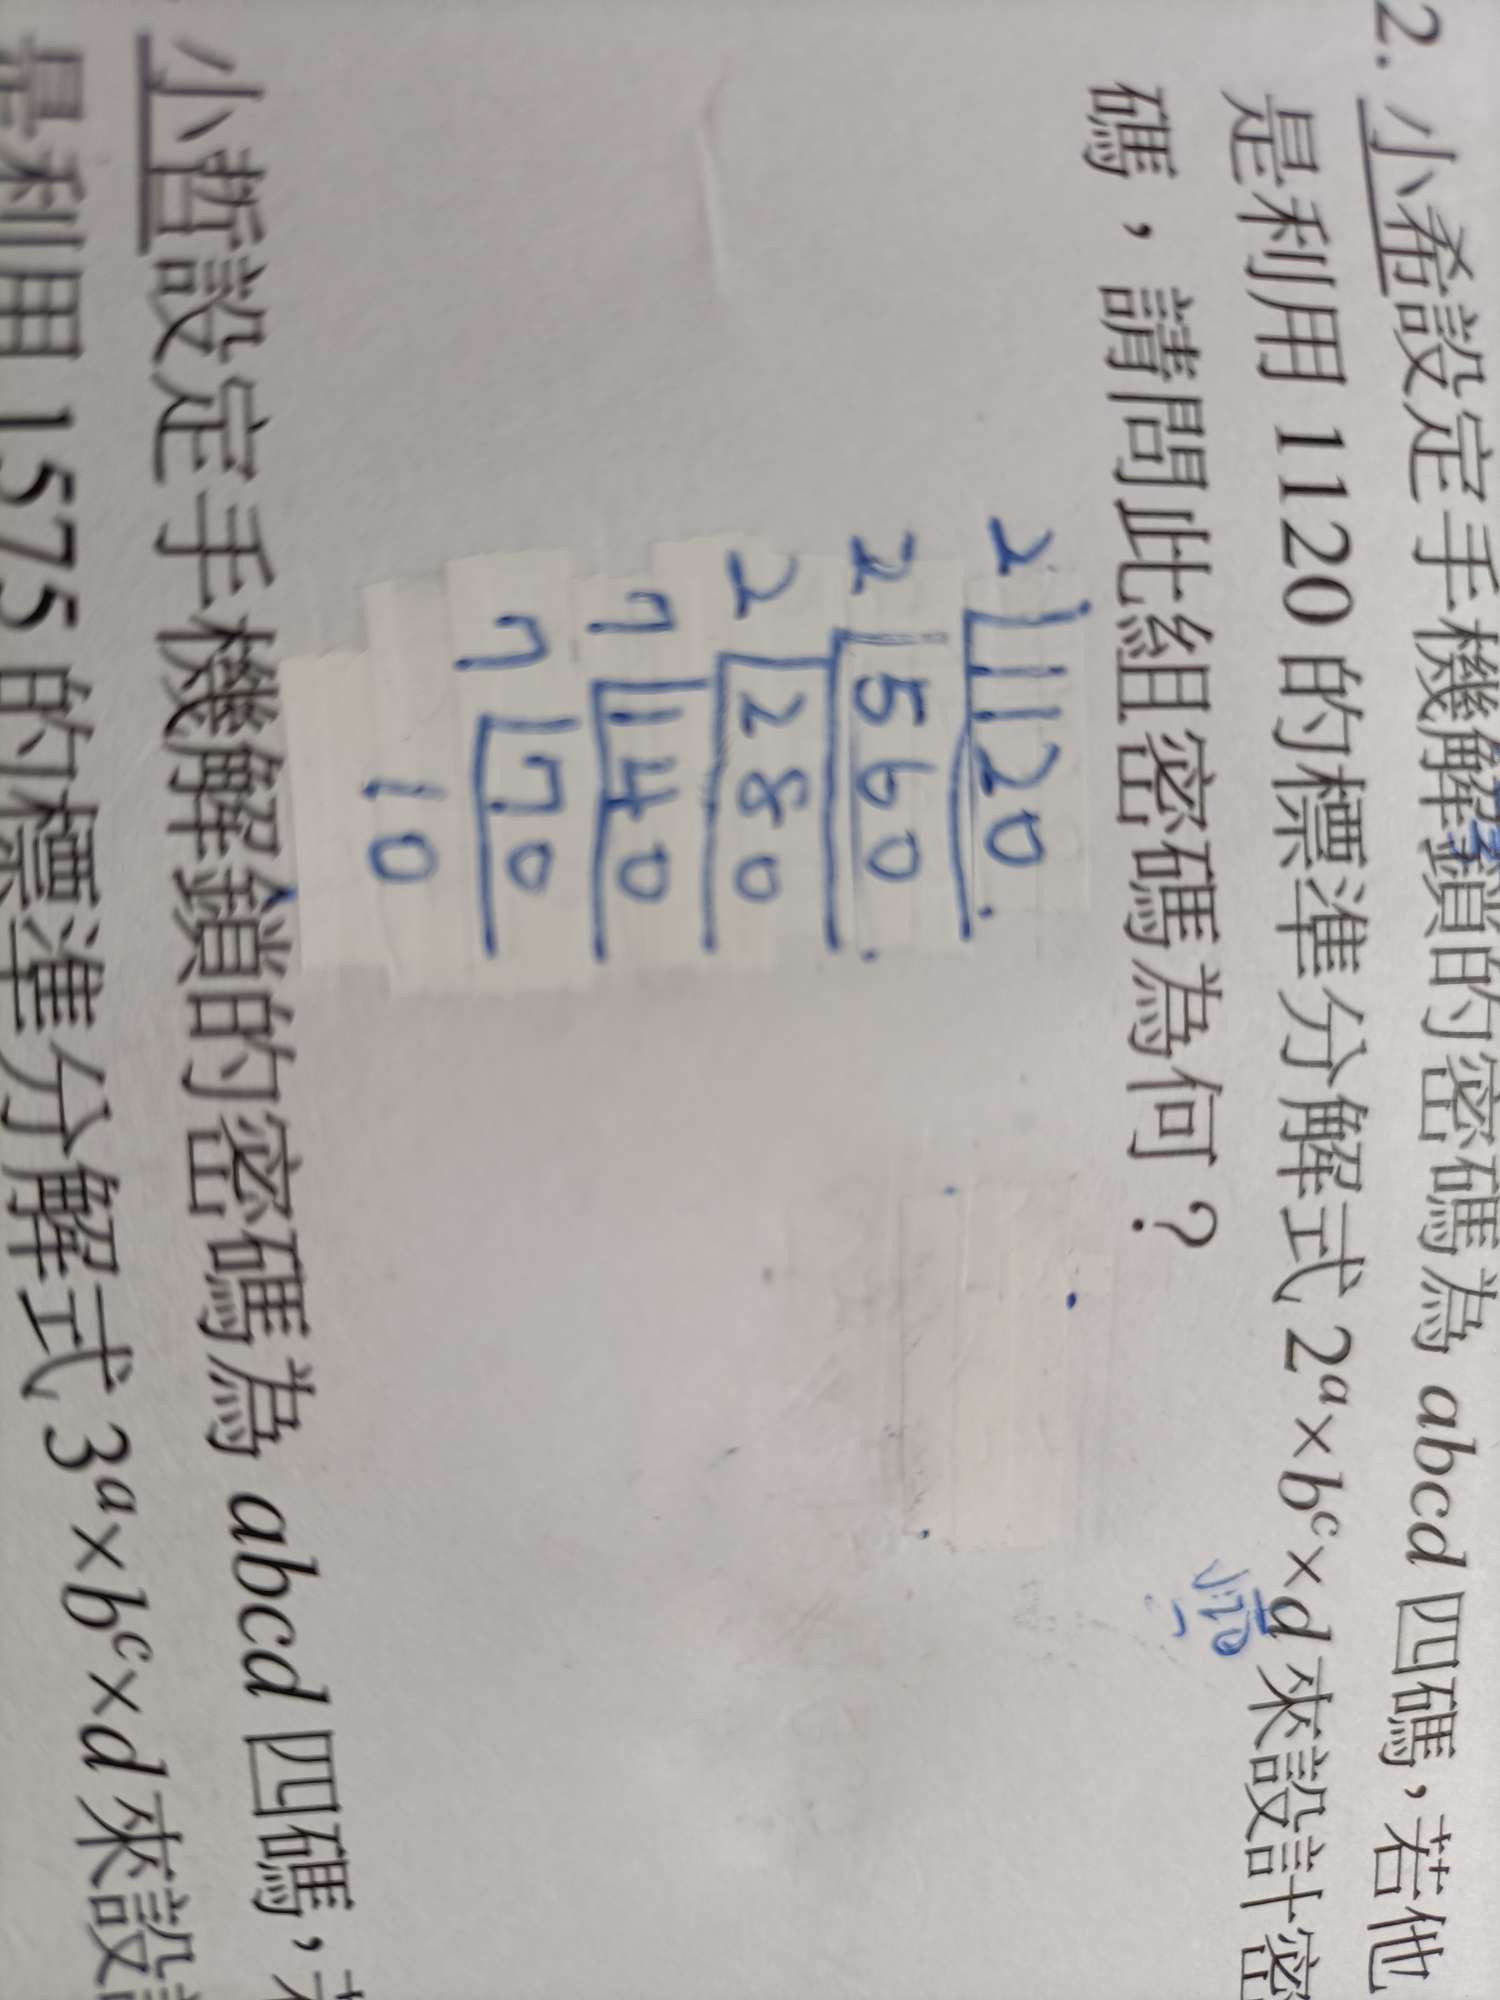 2. 小希設定手機解鎖的密碼為 abcd 四碼，若他
是利用 1120 的標準分解式 2ᵃ×bᶜ×d 來設計密
碼，請問此組密碼為何？
2 1120
2 560
2 280
7 140
7 70
10
小哲設定手機解鎖的密碼為 abcd 四碼，若
是利用 1575 的標準分解式 3ᵃ×bᶜ×d 來設